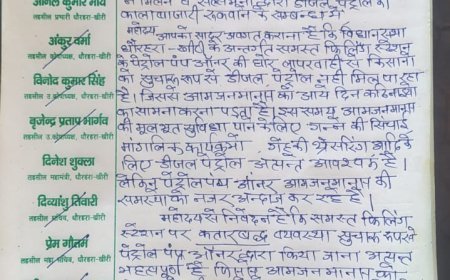 अनिल कुमार मौर्य
तहसील प्रभारी धौरहरा-खीरी
अंकुर वर्मा
तहसील कोषाध्यक्ष, धौरहरा-खीरी
विनोद कुमार सिंह
तहसील उ.कोषाध्यक्ष, धौरहरा-खीरी
बृजेन्द्र प्रताप भार्गव
तहसील उ.कोषाध्यक्ष, धौरहरा-खीरी
दिनेश शुक्ला
तहसील महामंत्री, धौरहरा-खीरी
दिव्यांशु तिवारी
तहसील सचिव, धौरहरा-खीरी
प्रेम गौतम
तहसील सचिव, धौरहरा-खीरी
न मिलने व द्वारा डीजल पेट्रोल की
कालाबाजारी रुकवाने के सम्बन्ध में
महोदय आपको सादर अवगत कराना है कि विधानसभा
धौरहरा-खीरी के अन्तर्गत समस्त फिलिंग स्टेशन
के पेट्रोल पंप ऑनर की घोर लापरवाही से किसानों
को सुचारू रूप से डीजल पेट्रोल नहीं मिल पा रहा
है। जिससे आमजनमानस को आये दिन कठिनाइयों
का सामना करना पड़ता है। इस समय आमजनमानस
की मूलभूत सुविधा पाने के लिए गन्ने की सिंचाई
मांगलिक कार्यक्रमों गेहूं की थ्रेसरिंग आदि के
लिए डीजल पेट्रोल अत्यन्त आवश्यक है।
लेकिन पेट्रोल पम्प ऑनर आमजनमानस की
समस्या को नजर अन्दाज कर रहे हैं।
महोदय से निवेदन है कि समस्त फिलिंग
स्टेशन पर कतारबद्ध व्यवस्था सुचारू रूप से
पेट्रोल पंप ऑनर द्वारा किया जाना अत्यन्त
महत्वपूर्ण है जिससे आमजन मानस को